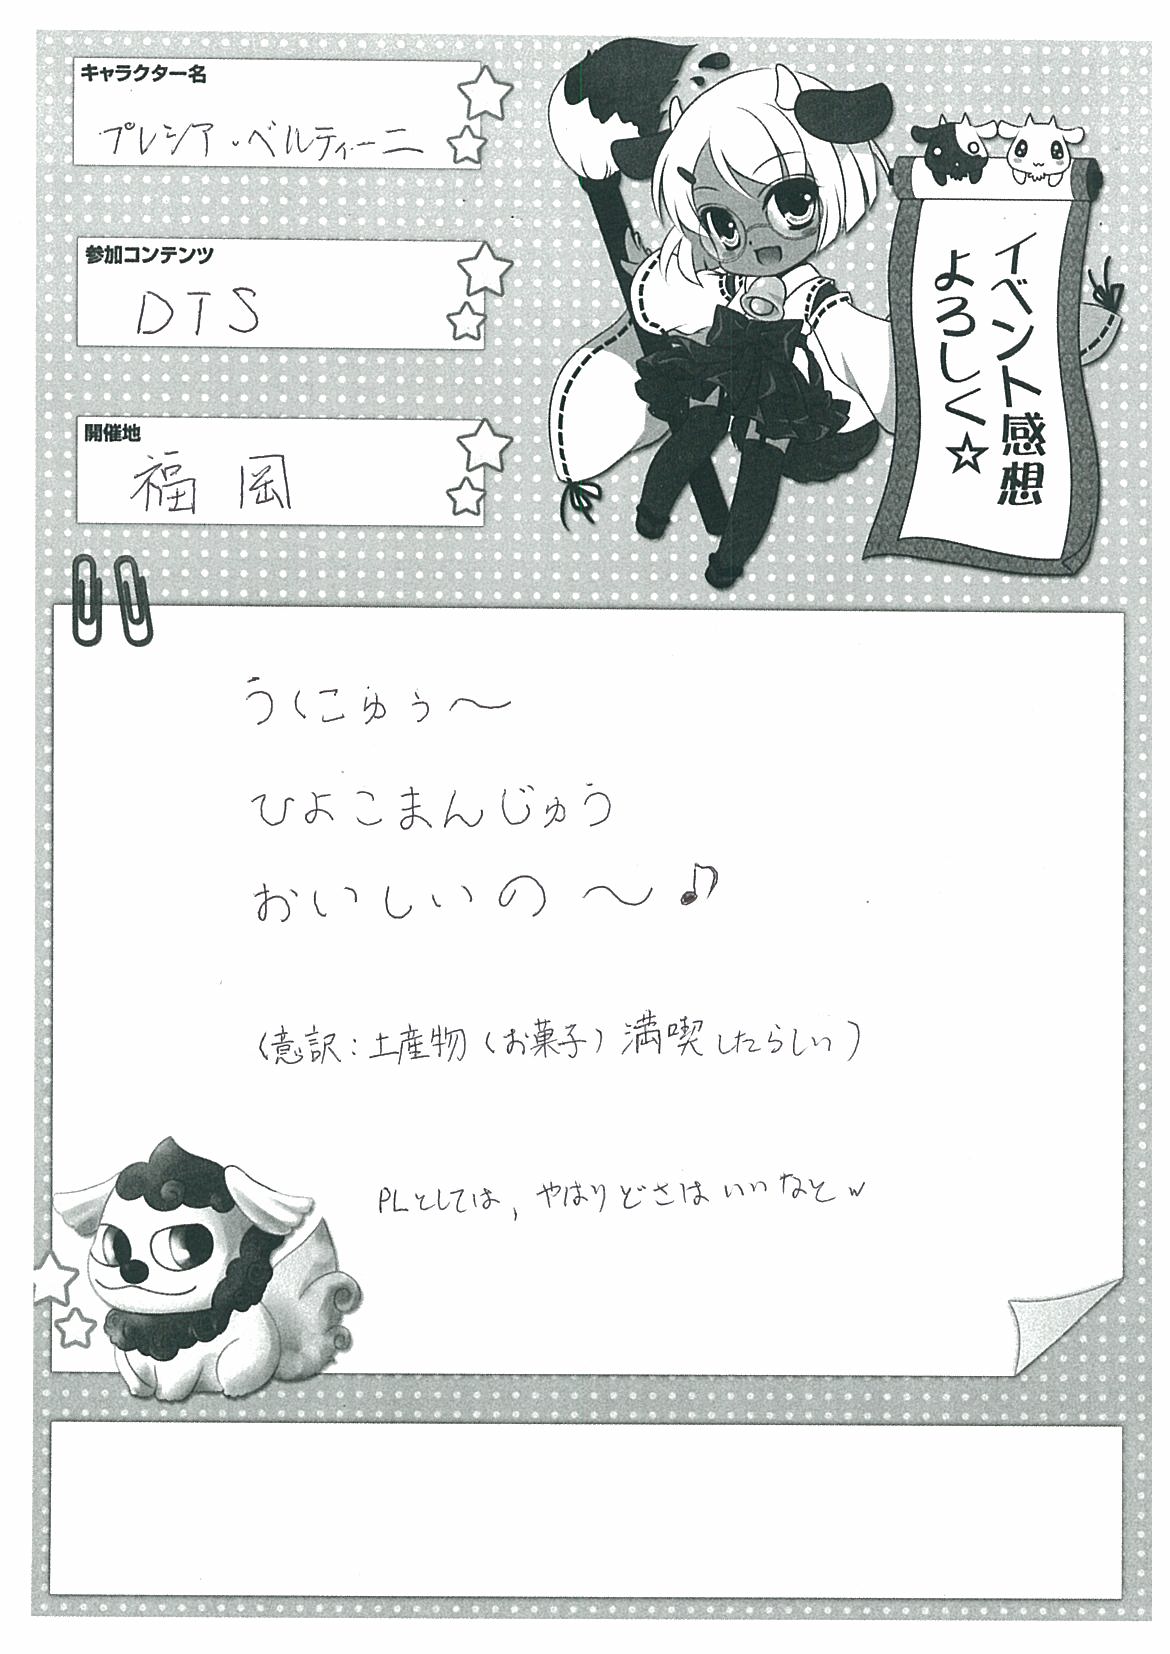 キャラクター名
プレシア・ベルティーニ
参加コンテンツ
DTS
開催地
福岡
イベント感想
よろしく☆
うにゅぅ～
ひよこまんじゅう
おいしいの～♪
(意訳:土産物(お菓子)満喫したらしい)
PLとしては,やはりどさはいいなとw